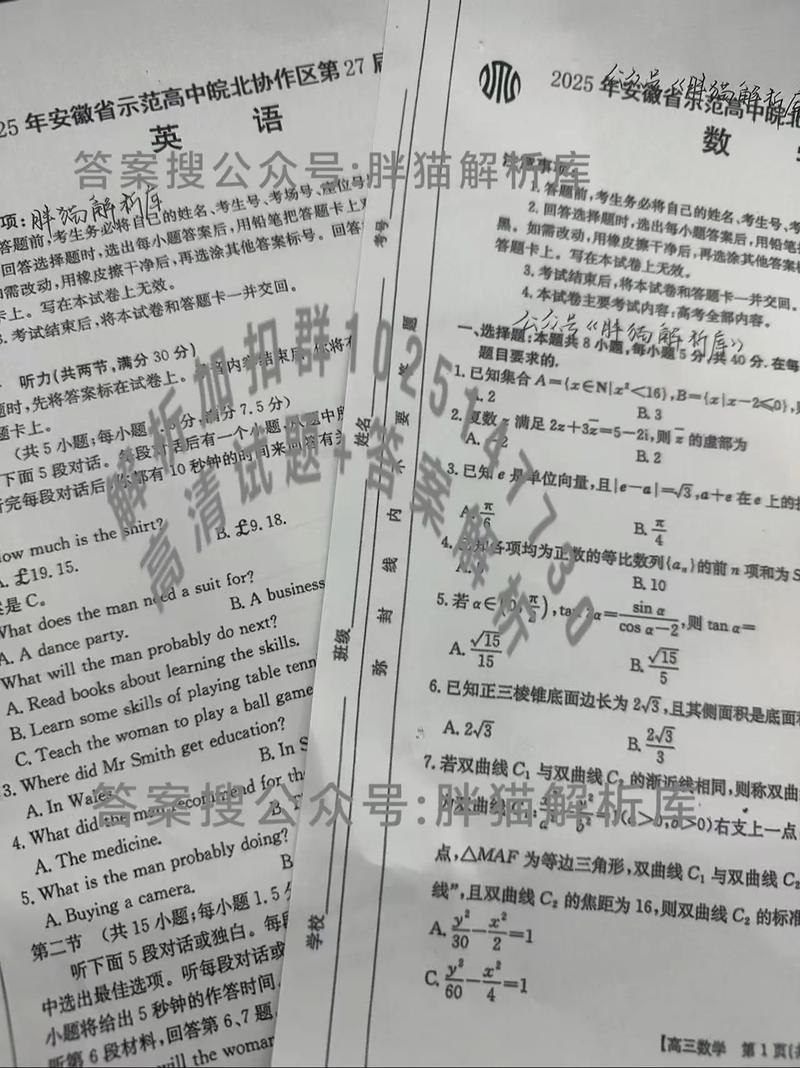 25 年安徽省示范高中皖北协作区第 27 届
英 语
项:胖猫解析库
答题前,考生务必将自己的姓名、考生号、考场号、座位号
回答选择题时,选出每小题答案后,用铅笔把答题卡上对
如需改动,用橡皮擦干净后,再选涂其他答案标号。回答
卡上。写在本试卷上无效。
3. 考试结束后,将本试卷和答题卡一并交回。
听力(共两节,满分 30 分)
题时,先将答案标在试卷上。
题卡上。
(共 5 小题;每小题 1.5 分,满分 7.5 分)
下面 5 段对话。每段对话后有一个小题,
听完每段对话后,你都有 10 秒钟的时间来回答有关
How much is the shirt?
A. £19.15.
B. £9.18.
案是 C。
What does the man need a suit for?
A. A dance party.
B. A business
What will the man probably do next?
A. Read books about learning the skills.
B. Learn some skills of playing table tenn
C. Teach the woman to play a ball game
3. Where did Mr Smith get education?
A. In Wales.
B. In S
4. What did the man recommend for th
A. The medicine.
5. What is the man probably doing?
A. Buying a camera.
B
第二节 (共 15 小题;每小题 1.5 分
听下面 5 段对话或独白。每段
中选出最佳选项。听每段对话或
小题将给出 5 秒钟的作答时间。
听第 6 段材料,回答第 6、7 题。
will the woman
学校
班级
姓名
考号
弥 封 线 内 不 要 答 题
2025 年安徽省示范高中皖北
公众号《胖猫解析库
数
注意事项:
1. 答题前,考生务必将自己的姓名、考生号、考
2. 回答选择题时,选出每小题答案后,用铅笔
黑。如需改动,用橡皮擦干净后,再选涂其他答案标
答题卡上。写在本试卷上无效。
3. 考试结束后,将本试卷和答题卡一并交回。
4. 本试卷主要考试内容:高考全部内容。
公众号《胖猫解析库》
一、选择题:本题共 8 小题,每小题 5 分,共 40 分. 在每
题目要求的.
1. 已知集合 A={x∈N|x²<16},B={x|x−2⩽0},
A. 2
B. 3
2. 复数 z 满足 2z+3z̄=5−2i,则 z̄ 的虚部为
A. −2
B. 2
3. 已知 e 是单位向量,且|e−a|=√3,a+e 在 e 上的投
A. π/6
B. π/4
4. 已知各项均为正数的等比数列{aₙ}的前 n 项和为 S
B. 10
5. 若 α∈(0,π/2),tan 2α=sin α/(cos α−2),则 tan α=
A. √15/15
B. √15/5
6. 已知正三棱锥底面边长为 2√3,且其侧面积是底面积
A. 2√3
B. 2√3/3
7. 若双曲线 C₁ 与双曲线 C₂ 的渐近线相同,则称双曲
为双曲线 C₁:x²/a²−y²/b²=1(a>0,b>0)右支上一点
点,△MAF 为等边三角形,双曲线 C₁ 与双曲线 C₂
线”,且双曲线 C₂ 的焦距为 16,则双曲线 C₂ 的标准
A. y²/30−x²/2=1
C. y²/60−x²/4=1
【高三数学 第 1 页(共
答案搜公众号:胖猫解析库
解析加扣群1025147730
高清试题+答案解析
答案搜公众号:胖猫解析库